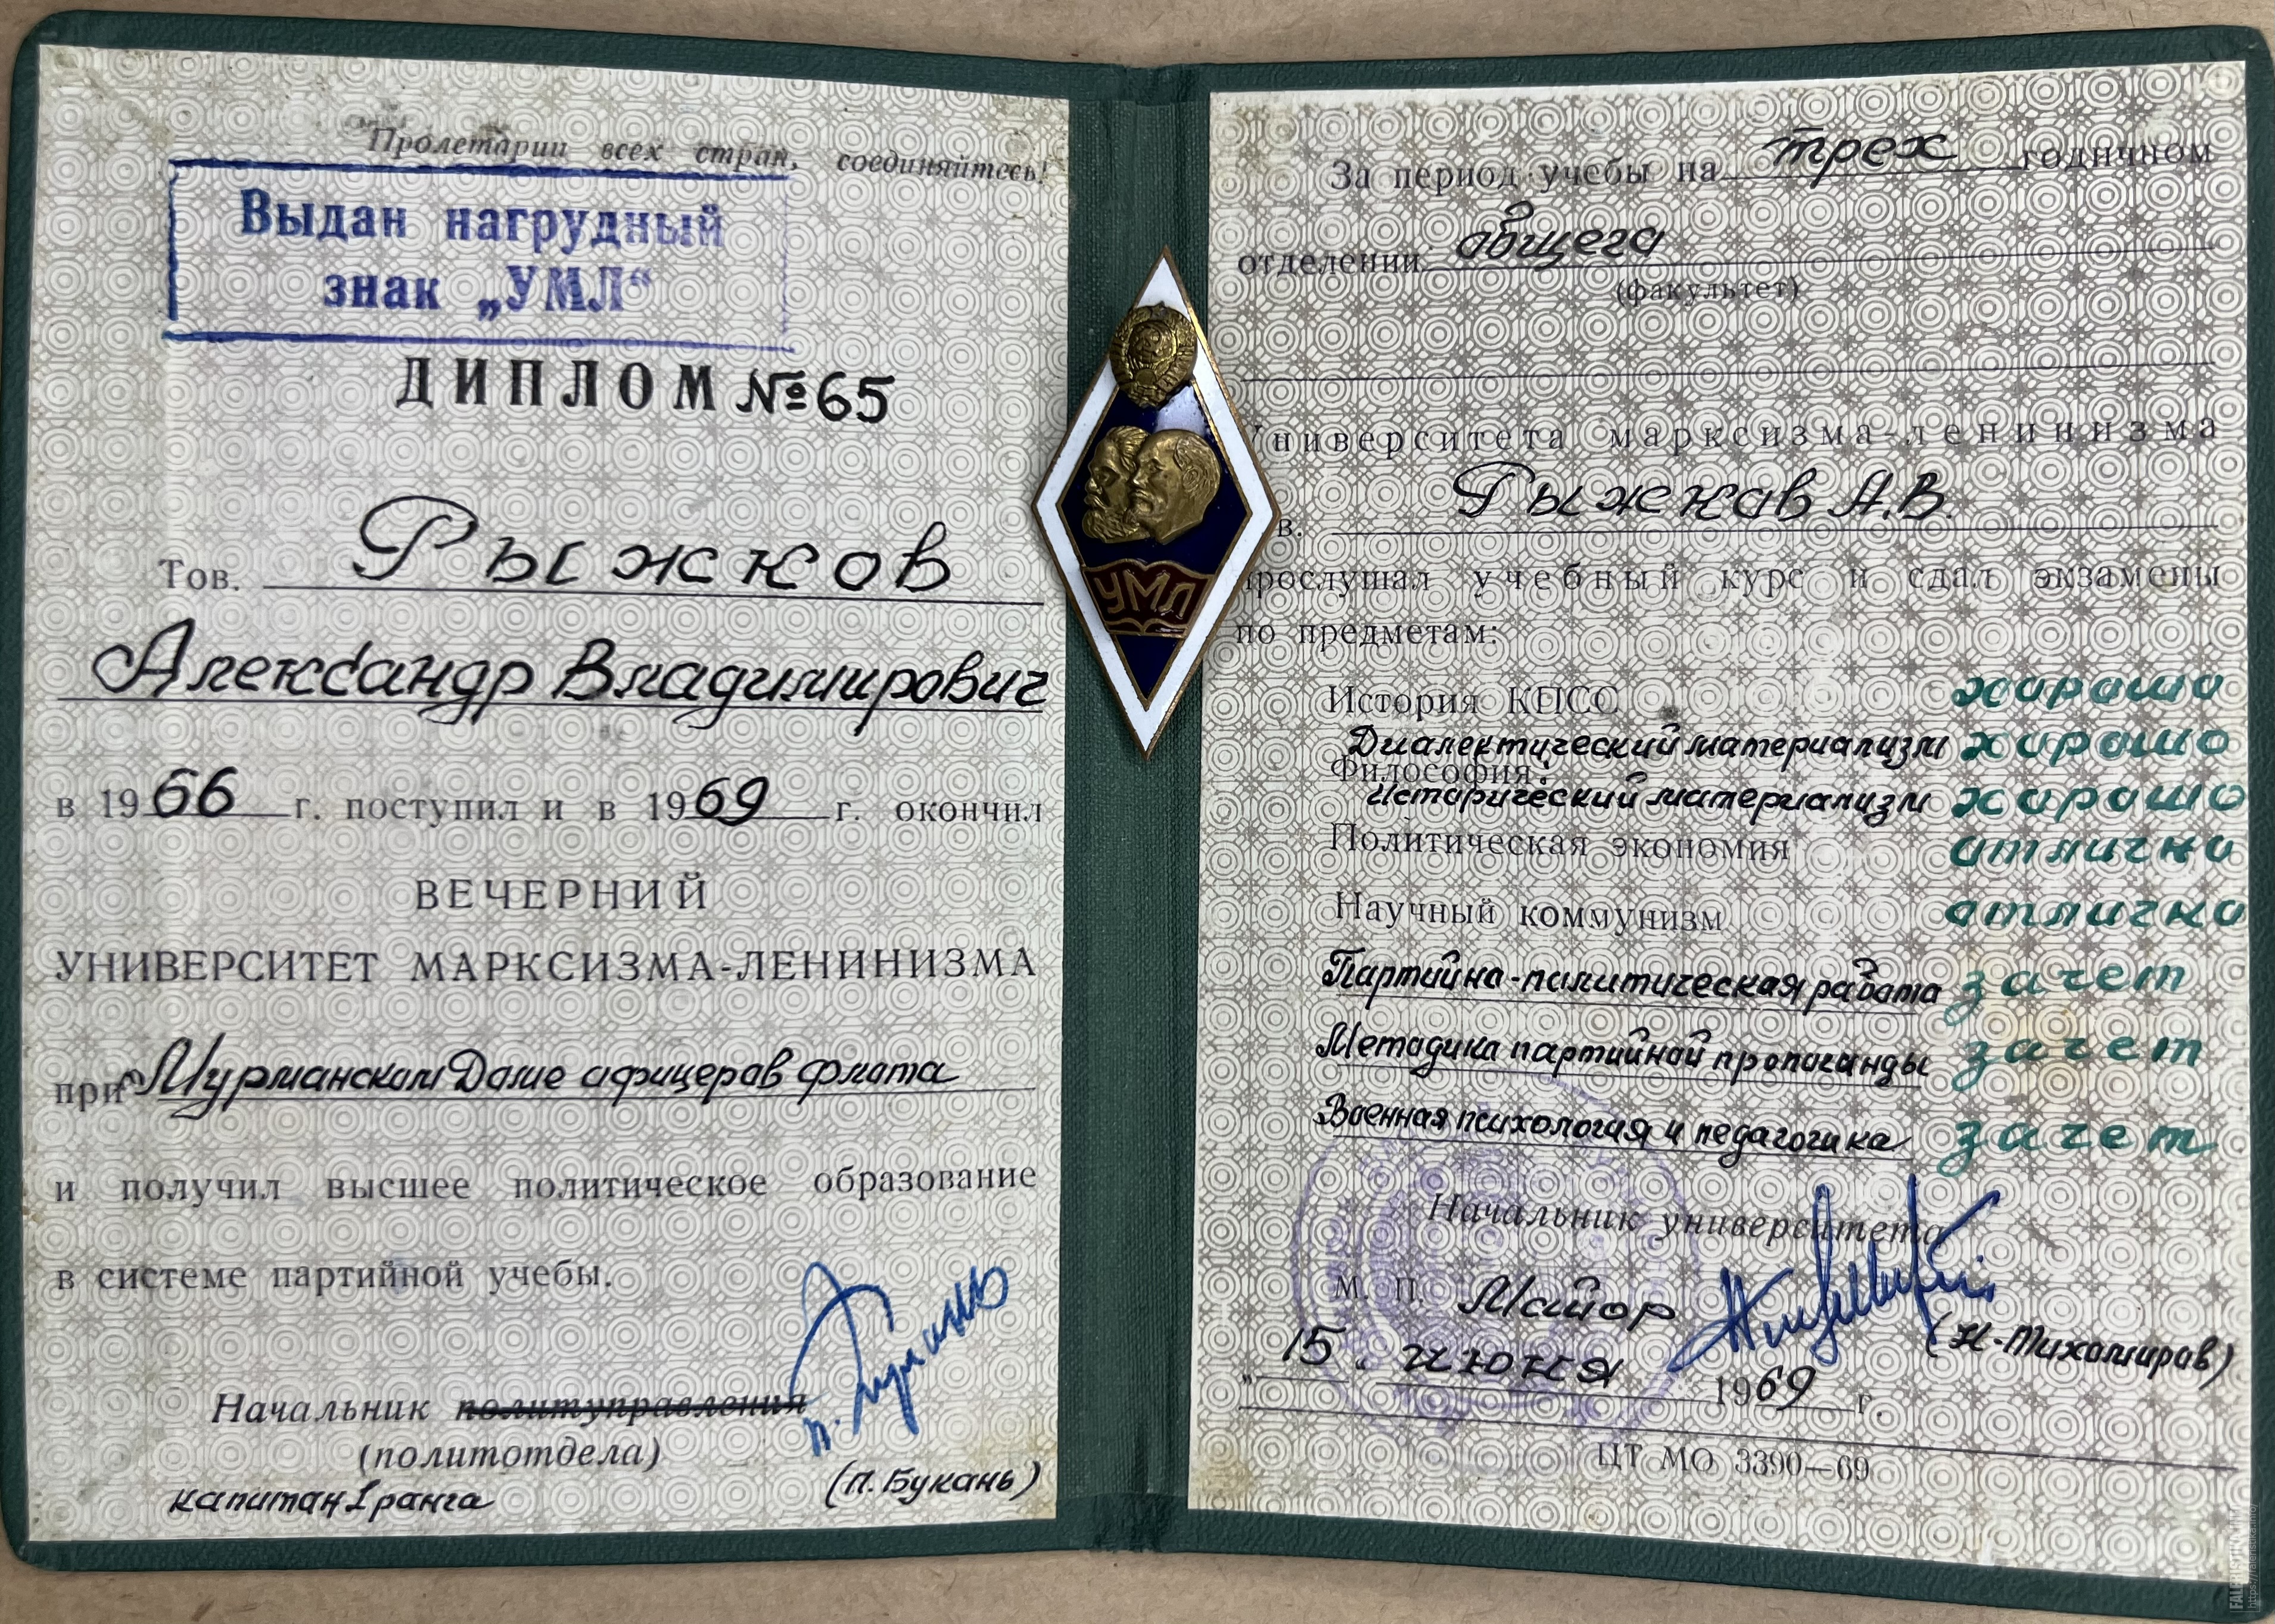 Пролетарии всех стран, соединяйтесь!
Выдан нагрудный
знак „УМЛ“
ДИПЛОМ №65
Тов. Рыжков
Александр Владимирович
в 1966 г. поступил и в 1969 г. окончил
ВЕЧЕРНИЙ
УНИВЕРСИТЕТ МАРКСИЗМА-ЛЕНИНИЗМА
при Мурманском Доме офицеров флота
и получил высшее политическое образование
в системе партийной учебы.
Начальник политуправления
(политотдела)
капитан 1 ранга (П. Букань)
УМЛ
За период учебы на трех годичном
отделении общего
(факультет)
Университета марксизма-ленинизма
в. Рыжков А.В.
прослушал учебный курс и сдал экзамены
по предметам:
История КПСС хорошо
Диалектический материализм хорошо
Философия:
Исторический материализм хорошо
Политическая экономия отлично
Научный коммунизм отлично
Партийно-политическая работа зачет
Методика партийной пропаганды зачет
Военная психология и педагогика зачет
Начальник университета
М. П. Майор (Н. Тихомиров)
„15. июня 1969 г.
ЦТ МО 3390—69